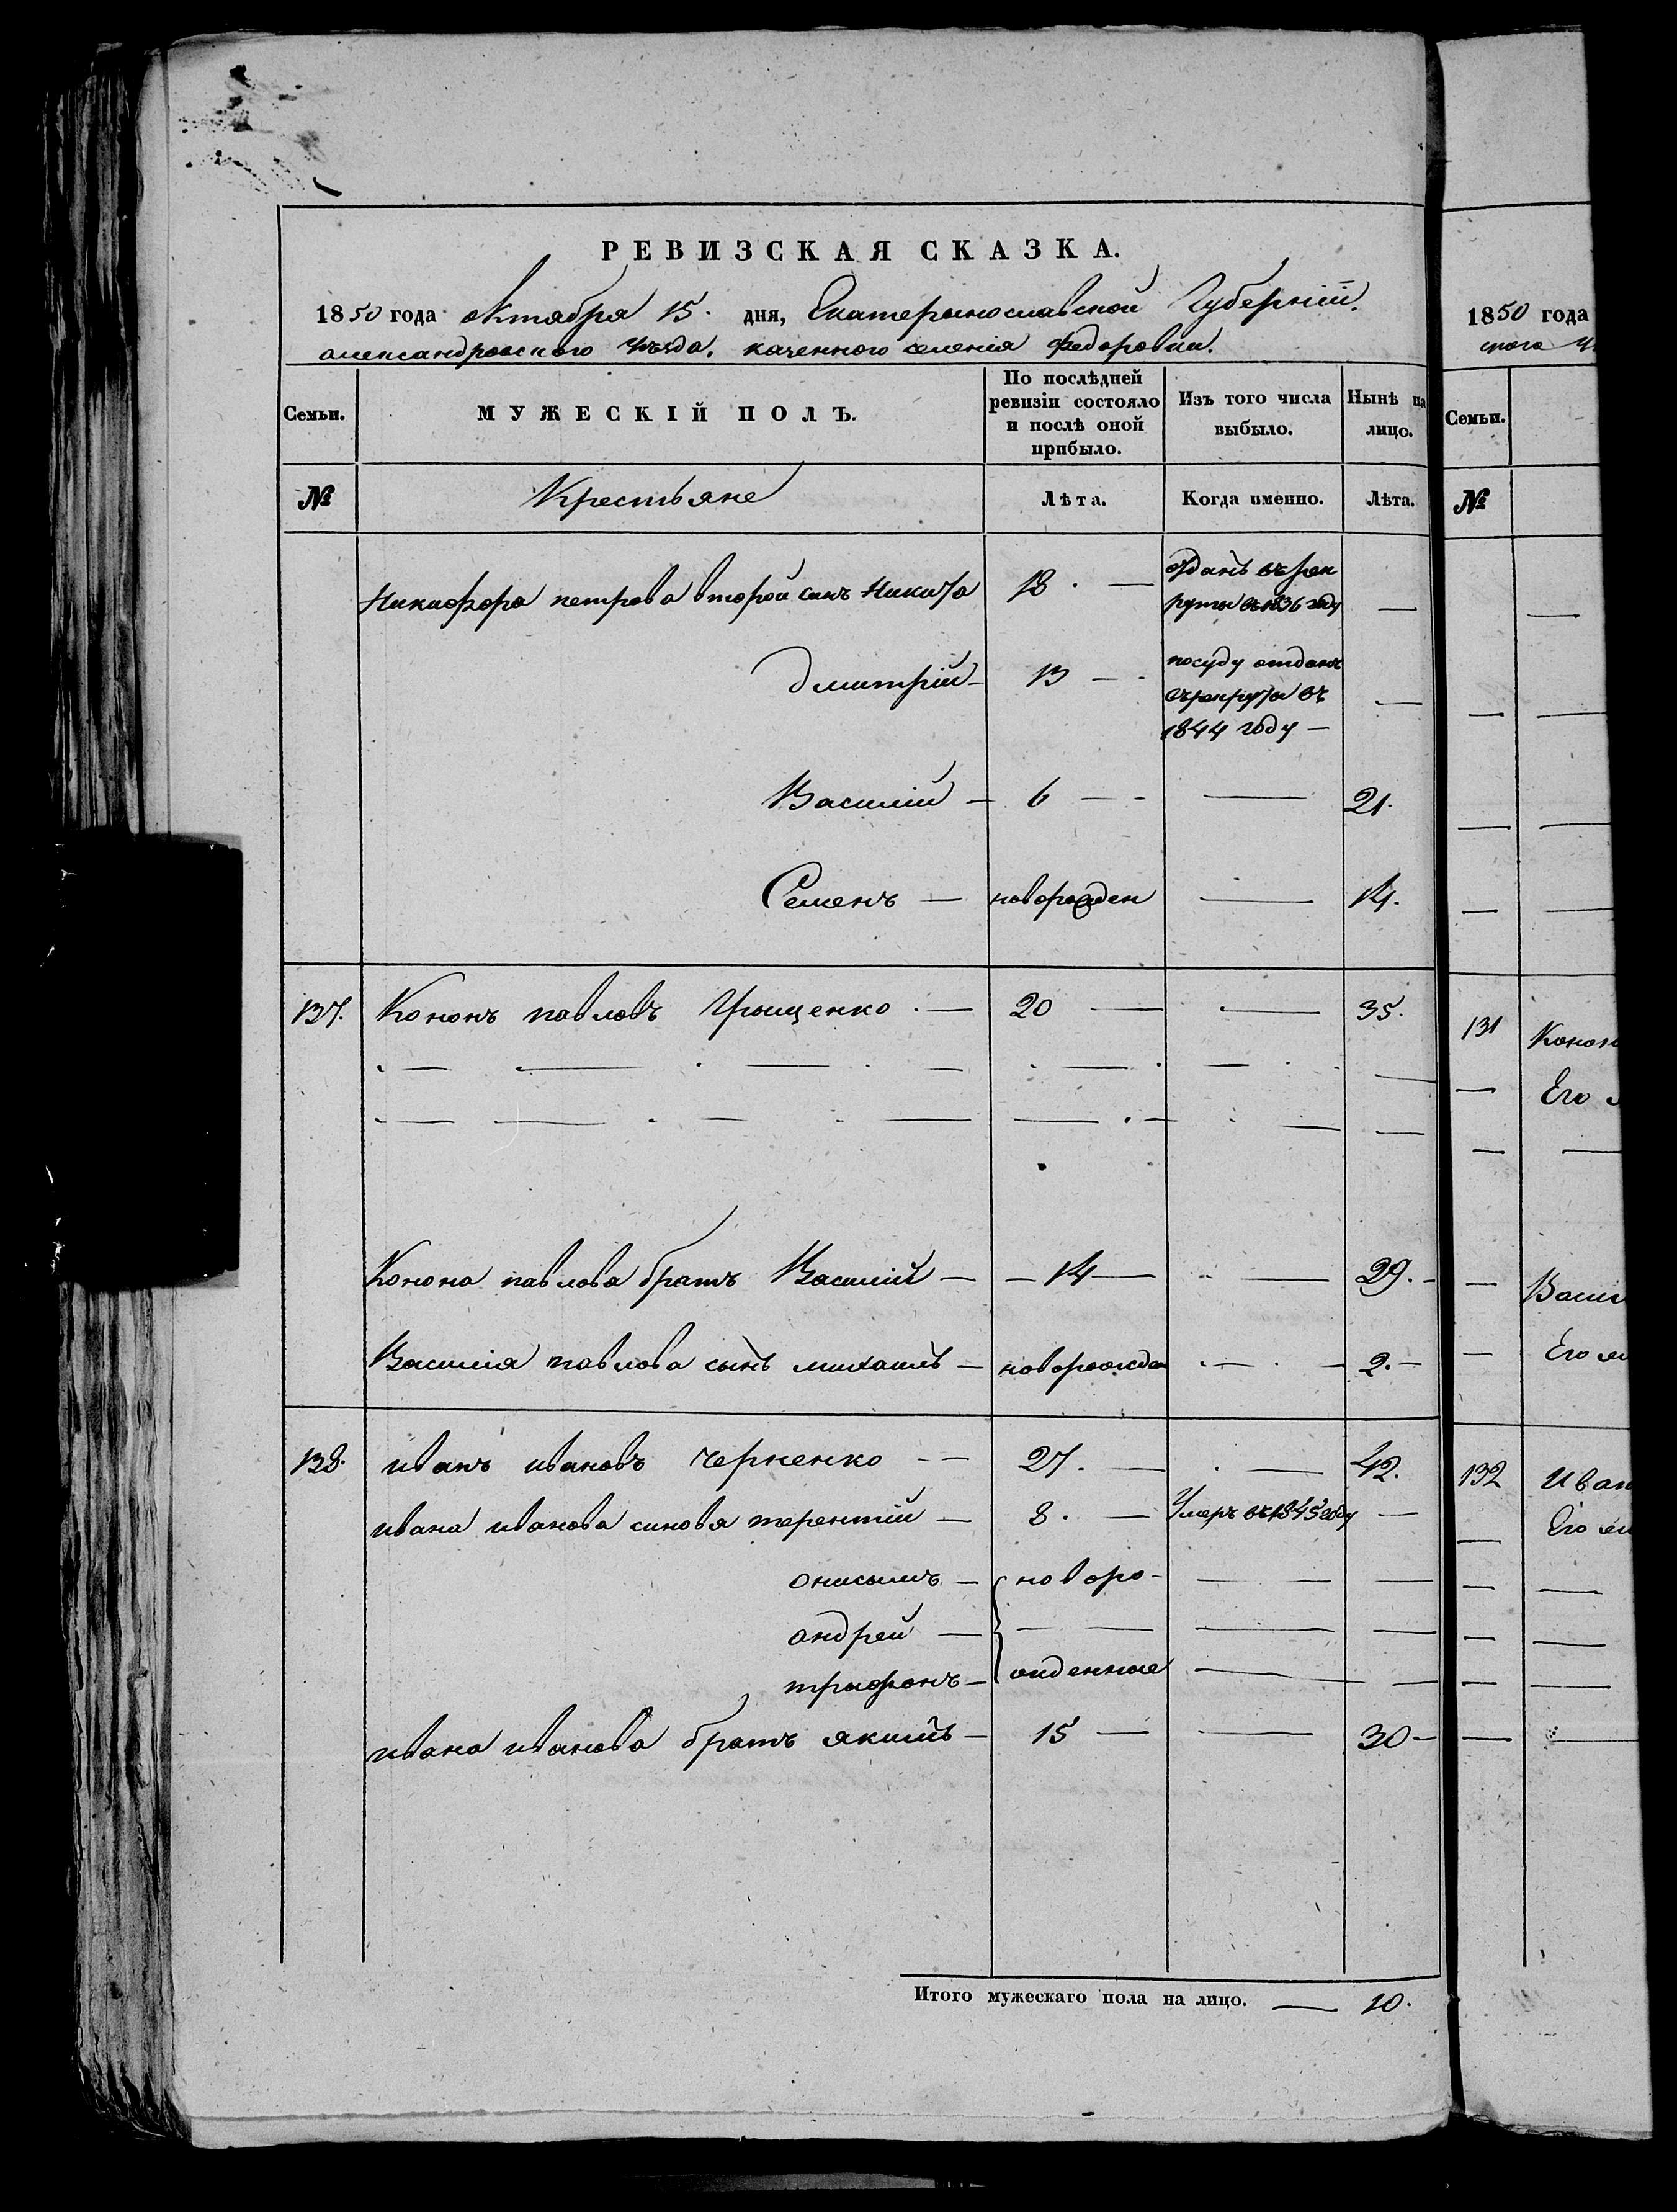 РЕВИЗСКАЯ СКАЗКА.
1850 года октября 15. дня, Екатерынославской Губерніи.
александровского уѣзда. казенного селенія Федоровки.
Семьи.
МУЖЕСКІЙ ПОЛЪ.
По послѣдней ревизіи состояло и послѣ оной прибыло.
Изъ того числа выбыло.
Нынѣ на лицо.
№
Крестьяне
Лѣта.
Когда именно.
Лѣта.
Никифора петрова второй синъ Никита 18. — отданъ въ рек
руты въ 1836 году —
Дмитрій — 13 — посуду отданъ
въ рекруты въ —
1844 году —
Василій — 6 — — 21.
Семенъ — новорожден — 14.
137. Кононъ павловъ Грыщенко. — 20 — — 35.
Конона павлова братъ Василій — — 14 — — 29. —
Василія павлова сынъ михаилъ — новорожден — 2. —
138. иванъ ивановъ Черненко — 27. — — 42.
ивана иванова синовя терентій — 8. — Умеръ въ 1845 году —
онисымъ — новоро- — —
андрей — — — — —
трифонъ — жденные — —
ивана иванова братъ якимъ — 15 — — 30 —
Итого мужескаго пола на лицо. — 10.
1850 года
Семьи.
№
131 Конон
Его
Васи
Его
132 Иван
Его